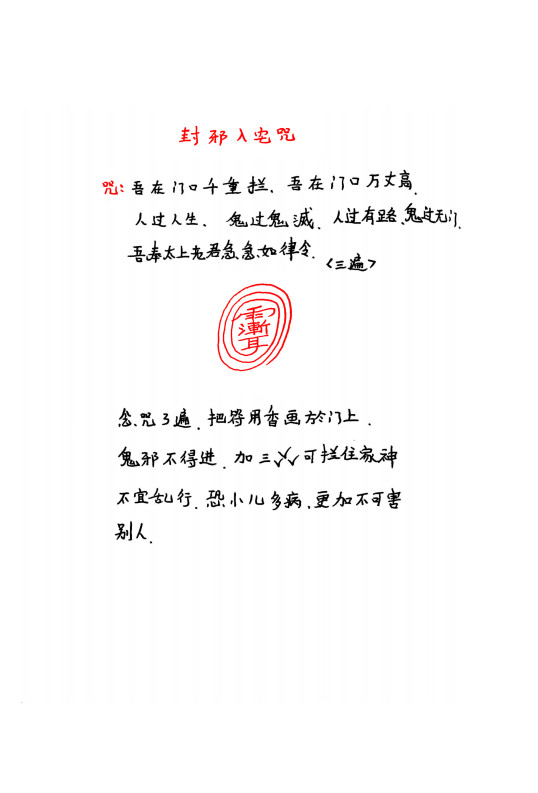 封邪入宅咒
咒:吾在门口千重拦、吾在门口万丈高.
人过人生、鬼过鬼滅.人过有路、鬼过无门.
吾奉太上老君急急如律令.
<三遍>
雨
漸
耳
念咒3遍.把符用香画於门上.
鬼邪不得进.加三乂乂可拦住家神
不宜乱行.恐小儿多病.更加不可害
别人.